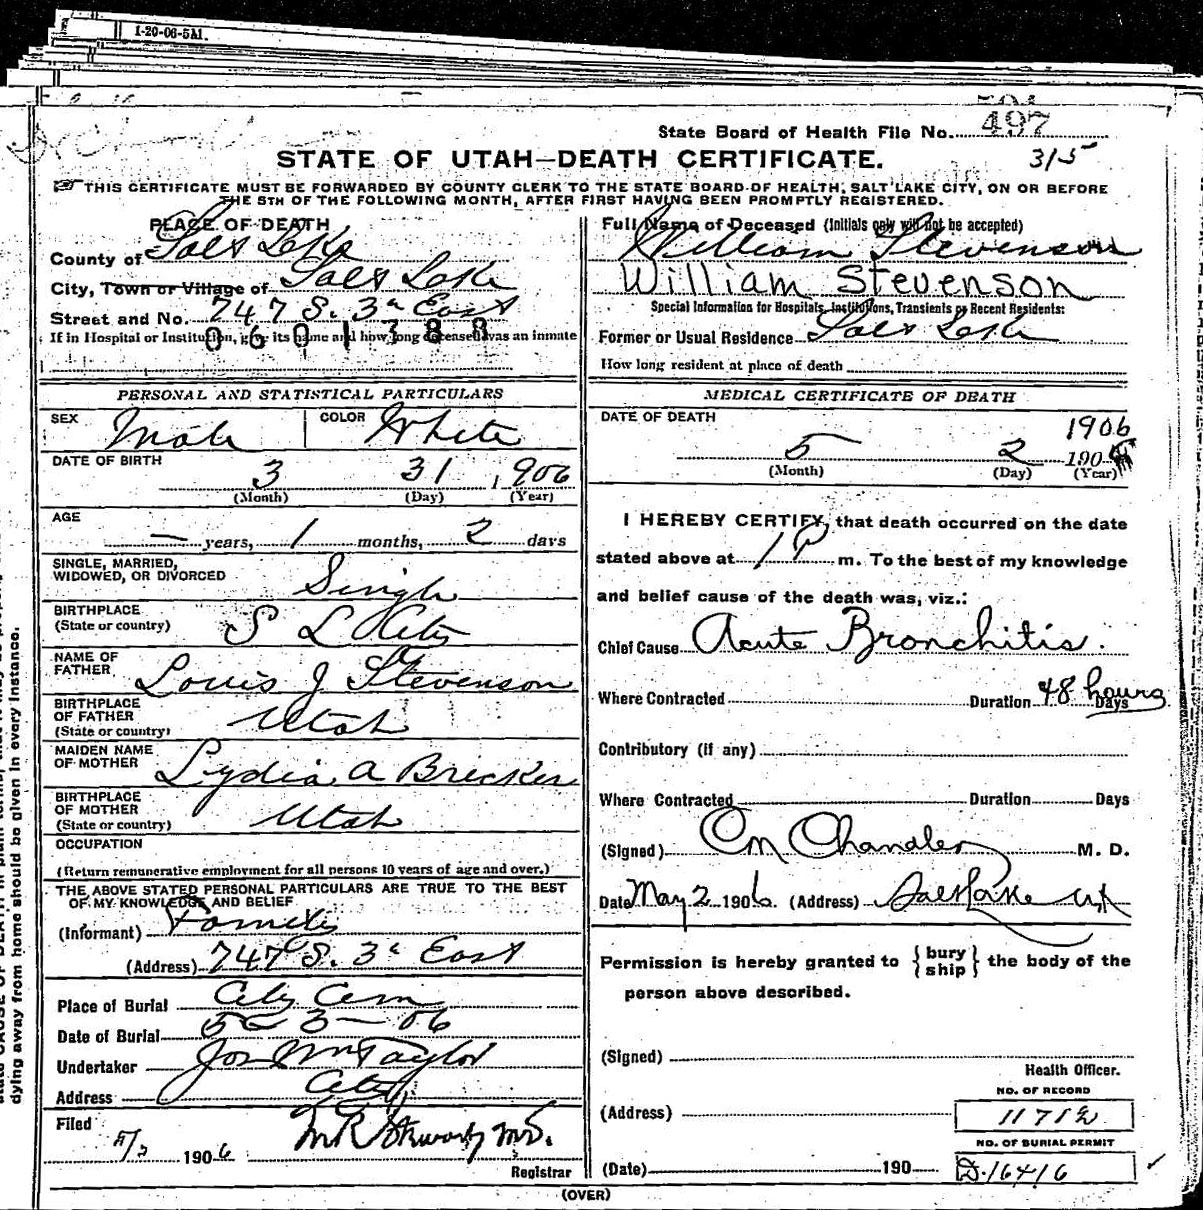 1-20-06-5M.
State Board of Health File No. 497
315
STATE OF UTAH—DEATH CERTIFICATE.
THIS CERTIFICATE MUST BE FORWARDED BY COUNTY CLERK TO THE STATE BOARD OF HEALTH, SALT LAKE CITY, ON OR BEFORE
THE 5TH OF THE FOLLOWING MONTH, AFTER FIRST HAVING BEEN PROMPTLY REGISTERED.
PLACE OF DEATH
County of Salt Lake
City, Town or Village of Salt Lake
Street and No. 747 S. 3d East
0601388
If in Hospital or Institution, give its name and how long deceased was an inmate
PERSONAL AND STATISTICAL PARTICULARS
SEX Male COLOR White
DATE OF BIRTH
3 31 1906
(Month) (Day) (Year)
AGE
— years, 1 months, 2 days
SINGLE, MARRIED,
WIDOWED, OR DIVORCED Single
BIRTHPLACE
(State or country) S L City
NAME OF
FATHER Louis J Stevenson
BIRTHPLACE
OF FATHER
(State or country) Utah
MAIDEN NAME
OF MOTHER Lydia A Brecker
BIRTHPLACE
OF MOTHER
(State or country) Utah
OCCUPATION
(Return remunerative employment for all persons 10 years of age and over.)
THE ABOVE STATED PERSONAL PARTICULARS ARE TRUE TO THE BEST
OF MY KNOWLEDGE AND BELIEF
(Informant) Family
(Address) 747 S. 3d East
Place of Burial City Cem
Date of Burial 5-3-06
Undertaker Jos Wm Taylor
Address City
Filed
5/3 1906 M.D.
Registrar
Full Name of Deceased (Initials only will not be accepted)
William Stevenson
William Stevenson
Special Information for Hospitals, Institutions, Transients or Recent Residents:
Former or Usual Residence Salt Lake
How long resident at place of death
MEDICAL CERTIFICATE OF DEATH
DATE OF DEATH
1906
5 2 190
(Month) (Day) (Year)
I HEREBY CERTIFY, that death occurred on the date
stated above at 1 P m. To the best of my knowledge
and belief cause of the death was, viz.:
Chief Cause Acute Bronchitis.
Where Contracted Duration 48 hours Days
Contributory (if any)
Where Contracted Duration Days
(Signed) C M Chandler M. D.
Date May 2 1906. (Address) Salt Lake Ut
Permission is hereby granted to { bury ship } the body of the
person above described.
(Signed)
Health Officer.
NO. OF RECORD
(Address) 11712
NO. OF BURIAL PERMIT
(Date) 190 D.16416
(OVER)
dying away from home should be given in every instance.